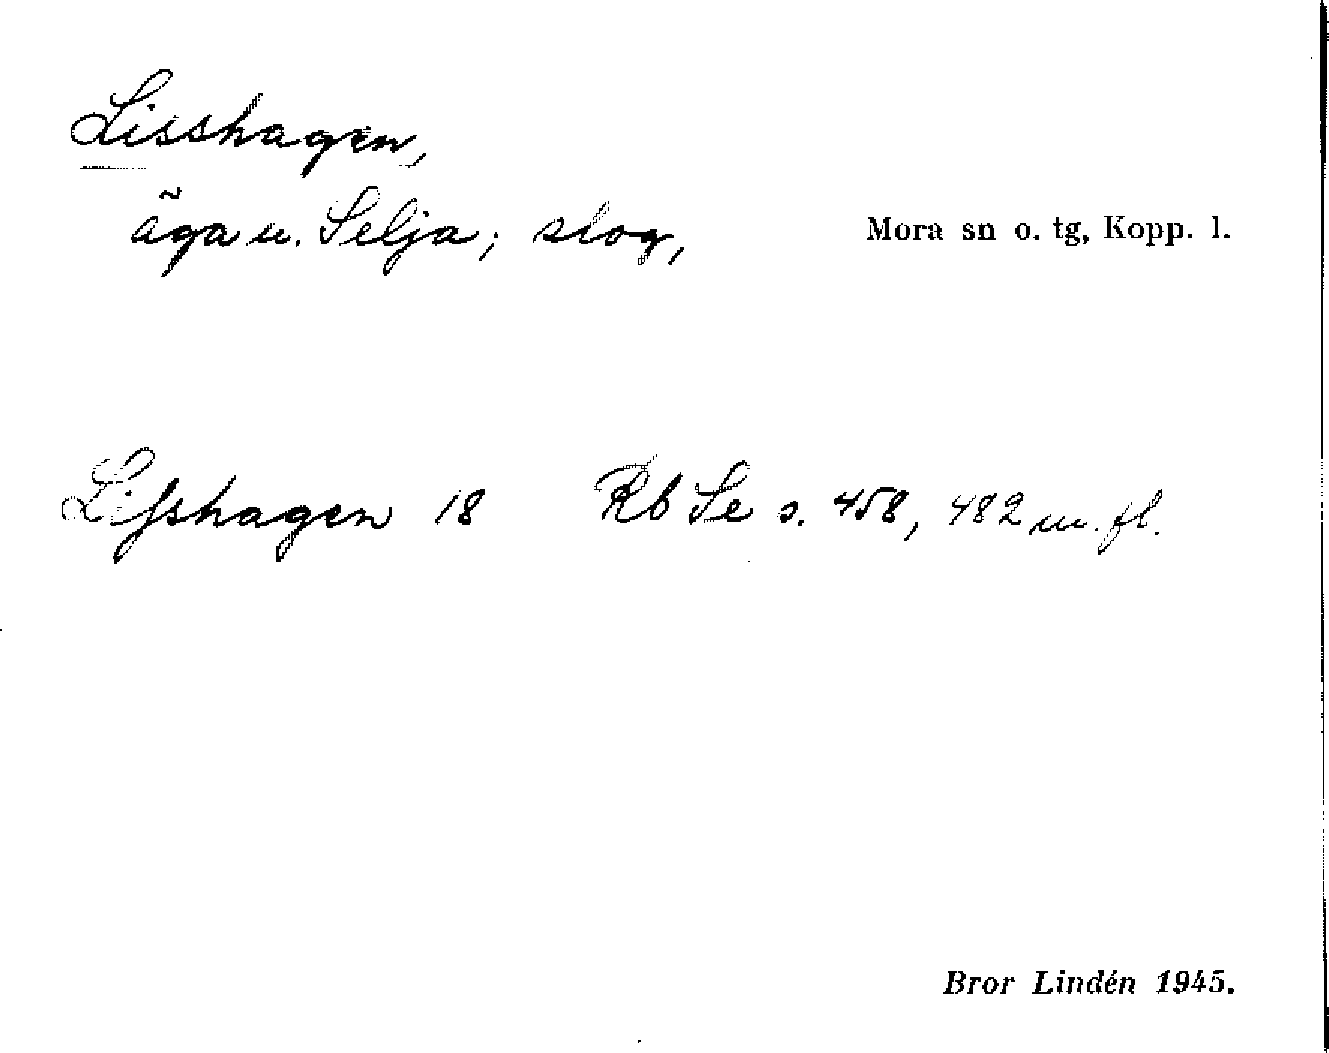 Lisshagen,
äga u. Selja; slog,
Mora sn o. tg, Kopp. l.
Lifshagen 18 Rb Se s. 458, 482 m. fl.
Bror Lindén 1945.